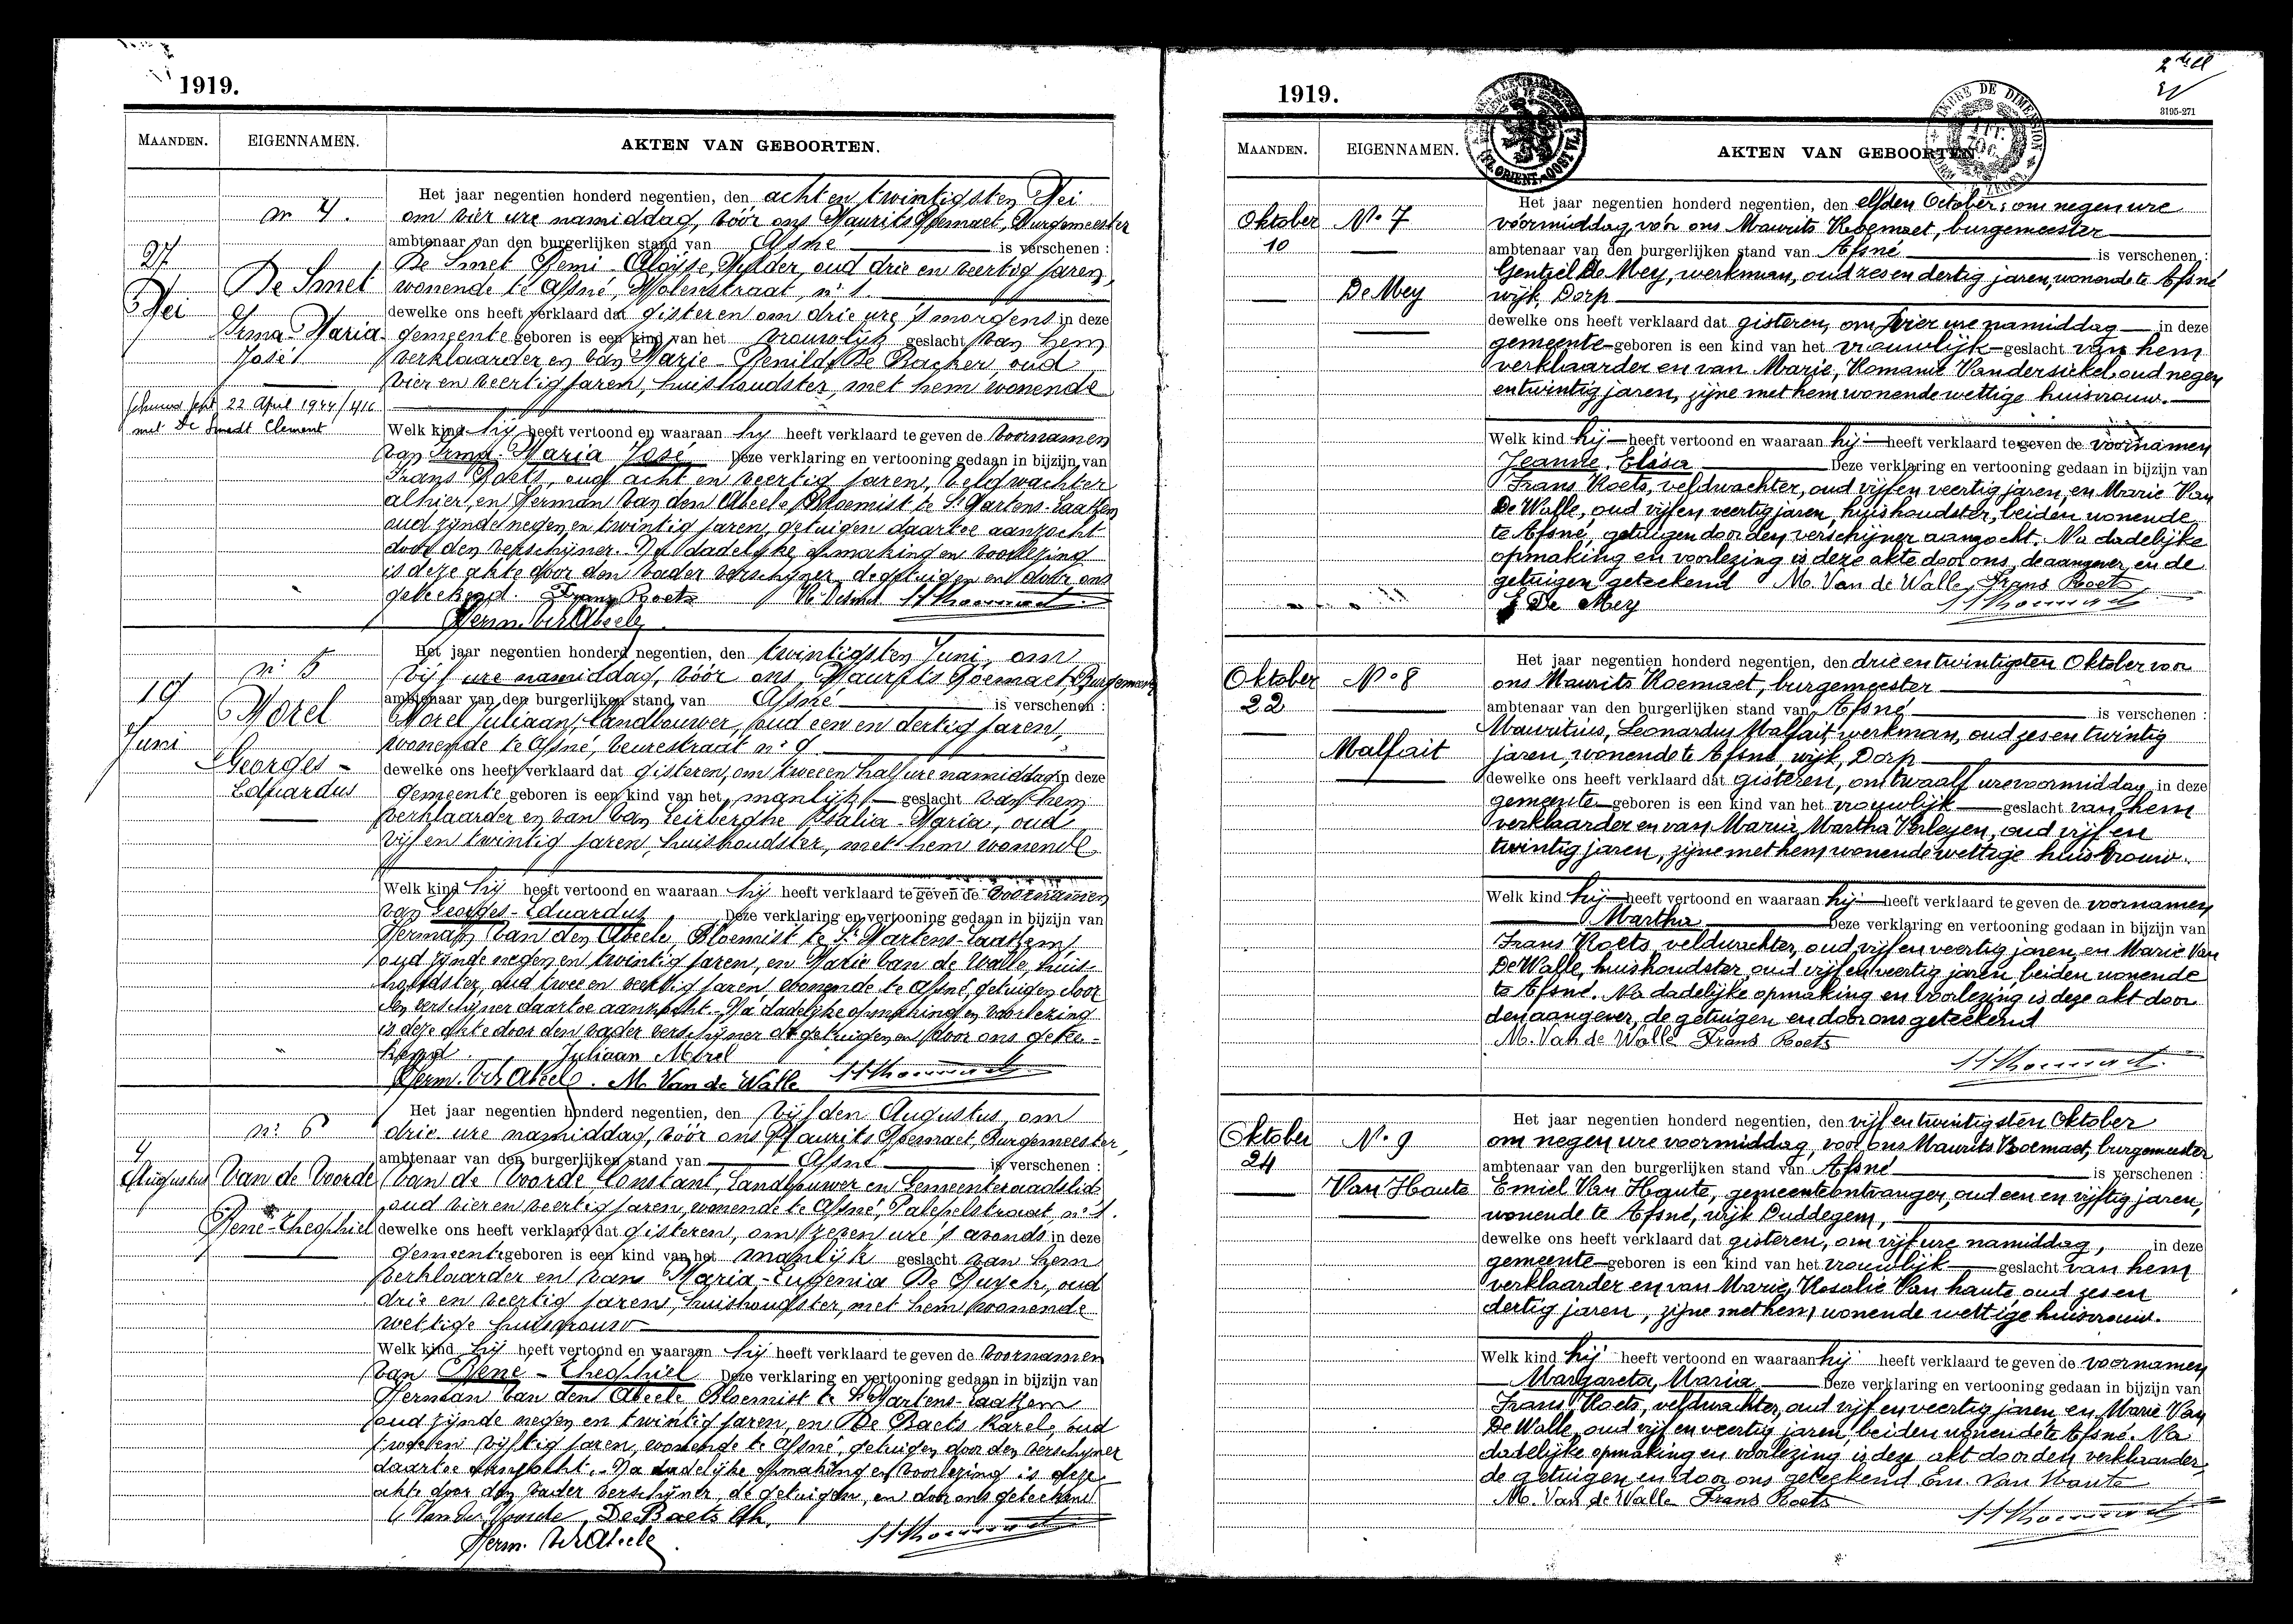 1919.
MAANDEN. EIGENNAMEN. AKTEN VAN GEBOORTEN.
nr 4.
27
Mei
De Smet
Irma-Maria
José
22 April 1944/416
met De Smedt Clement
Het jaar negentien honderd negentien, den acht en twintigsten Mei
om vier ure namiddag, vóór ons Maurits Roemaet, Burgemeester
ambtenaar van den burgerlijken stand van Afsné is verschenen :
De Smet Remi Aloÿse, oud drie en veertig jaren,
wonende te Afsné, Molenstraat, nr 1.
dewelke ons heeft verklaard dat gisteren om drie ure 's morgens in deze
gemeente geboren is een kind van het vrouwlijk geslacht van hem
verklaarder en van Marie-Renilde De Backer, oud
vier en veertig jaren, huishoudster, met hem wonende
Welk kind hij heeft vertoond en waaraan hij heeft verklaard te geven de voornamen
van Irma Maria José Deze verklaring en vertooning gedaan in bijzijn van
Frans Roets, oud acht en veertig jaren, veldwachter
alhier, en Herman Van den Abeele, Bloemist te St Martens-Laathem
oud zijnde negen en twintig jaren, getuigen daartoe aanzocht
door den verschijner. Na dadelijke opmaking en voorlezing
is deze akte door den vader verschijner, de getuigen en door ons
geteekend. Frans Roets
Herm. Vd Abeele
nr 5
19
Juni
Morel
Georges-
Eduardus
Het jaar negentien honderd negentien, den twintigsten Juni, om
vijf ure namiddag, vóór ons, Maurits Roemaet, Burgemeester
ambtenaar van den burgerlijken stand van Afsné is verschenen :
Morel Juliaan, landbouwer, oud een en dertig jaren,
wonende te Afsné, Veurestraat nr 9
dewelke ons heeft verklaard dat gisteren, om twee en half ure namiddag in deze
gemeente geboren is een kind van het manlijk geslacht van hem
verklaarder en van Van Leirberghe Rsalia-Maria, oud
vijf en twintig jaren, huishoudster, met hem wonende
Welk kind hij heeft vertoond en waaraan hij heeft verklaard te geven de voornamen
van Georges-Eduardus Deze verklaring en vertooning gedaan in bijzijn van
Herman Van den Abeele, Bloemist te St Martens-Laathem
oud zijnde negen en twintig jaren, en Marie Van de Walle, huis-
houdster, oud twee en veertig jaren, wonende te Afsné, getuigen door
den verschijner daartoe aanzocht. Na dadelijke opmaking en voorlezing
is deze akte door den vader verschijner de getuigen en door ons getee-
kend. Juliaan Morel
Herm. Vd Abeele. M. Van de Walle
nr 6
4
Augustus
Van de Voorde
René-Theophiel
Het jaar negentien honderd negentien, den vijfden Augustus, om
drie ure namiddag, vóór ons Maurits Roemaet, Burgemeester,
ambtenaar van den burgerlijken stand van Afsné is verschenen :
Van de Voorde Constant, Landbouwer en Gemeenteraadslid
oud vier en veertig jaren, wonende te Afsné, Palepelstraat, nr 1.
dewelke ons heeft verklaard dat gisteren, om zeven ure 's avonds in deze
gemeente geboren is een kind van het manlijk geslacht van hem
verklaarder en van Maria-Eugenia De Buyck, oud
drie en veertig jaren, huishoudster, met hem wonende
wettige huisvrouw
Welk kind hij heeft vertoond en waaraan hij heeft verklaard te geven de voornamen
van René-Theophiel Deze verklaring en vertooning gedaan in bijzijn van
Herman Van den Abeele Bloemist te St Martens-Laathem
oud zijnde negen en twintig jaren, en De Baets Karel, oud
twee en vijftig jaren, wonende te Afsné, getuigen door den verschijner
daartoe aanzocht. Na dadelijke opmaking en voorlezing is deze
akte door den vader verschijner, de getuigen, en door ons geteekend
C Van de Voorde De Baets Ch.
Herm. Vd Abeele
1919.
3195-271
TIMBRE DE DIMENSION
MAANDEN. EIGENNAMEN. AKTEN VAN GEBOORTEN.
Oktober
10
No 7
De Mey
Het jaar negentien honderd negentien, den elfden October, om negen ure
voormiddag, voor ons Maurits Roemaet, burgemeester
ambtenaar van den burgerlijken stand van Afsné is verschenen :
Gentiel De Mey, werkman, oud zes en dertig jaren, wonende te Afsné
wijk, Dorp
dewelke ons heeft verklaard dat gisteren, om vier ure namiddag in deze
gemeente geboren is een kind van het vrouwlijk geslacht van hem
verklaarder en van Marie, Romanie Vandersickel, oud negen
en twintig jaren, zijne met hem wonende wettige huisvrouw.
Welk kind hij heeft vertoond en waaraan hij heeft verklaard te geven de voornamen
Jeanne, Elisa Deze verklaring en vertooning gedaan in bijzijn van
Frans Roets, veldwachter, oud vijf en veertig jaren, en Marie Van
De Walle, oud vijf en veertig jaren, huishoudster, beiden wonende
te Afsné, getuigen door den verschijner aanzocht. Na dadelijke
opmaking en voorlezing is deze akte door ons, de aangever, en de
getuigen geteekend M. Van de Walle Frans Roets
G De Mey
Oktober
22
No 8
Malfait
Het jaar negentien honderd negentien, den drie en twintigsten Oktober voor
ons Maurits Roemaet, burgemeester
ambtenaar van den burgerlijken stand van Afsné is verschenen :
Mauritius, Leonardus Malfait, werkman, oud zes en twintig
jaren, wonende te Afsné, wijk, Dorp
dewelke ons heeft verklaard dat gisteren, om twaalf ure voormiddag in deze
gemeente geboren is een kind van het vrouwlijk geslacht van hem
verklaarder en van Maria Martha Verleyen, oud vijf en
twintig jaren, zijne met hem wonende wettige huisvrouw.
Welk kind hij heeft vertoond en waaraan hij heeft verklaard te geven de voornamen
Martha Deze verklaring en vertooning gedaan in bijzijn van
Frans Roets, veldwachter, oud vijf en veertig jaren, en Marie Van
De Walle, huishoudster, oud vijf en veertig jaren, beiden wonende
te Afsné. Na dadelijke opmaking en voorlezing is deze akt door
den aangever, de getuigen en door ons geteekend
M. Van de Walle Frans Roets
Oktober
24
No 9
Van Haute
Het jaar negentien honderd negentien, den vijf en twintigsten Oktober
om negen ure voormiddag, voor ons Maurits Roemaet, burgemeester
ambtenaar van den burgerlijken stand van Afsné is verschenen :
Emiel Van Haute, gemeenteontvanger, oud een en vijftig jaren,
wonende te Afsné, wijk Duddegem,
dewelke ons heeft verklaard dat gisteren, om vijf ure namiddag, in deze
gemeente geboren is een kind van het vrouwlijk geslacht van hem
verklaarder en van Marie, Rosalie Van haute, oud zes en
dertig jaren, zijne met hem wonende wettige huisvrouw.
Welk kind hij heeft vertoond en waaraan hij heeft verklaard te geven de voornamen
Margareta, Maria Deze verklaring en vertooning gedaan in bijzijn van
Frans Roets, veldwachter, oud vijf en veertig jaren, en Marie Van
De Walle, oud vijf en veertig jaren, beiden wonende te Afsné. Na
dadelijke opmaking en voorlezing is deze akt door den verklaarder,
de getuigen en door ons geteekend Em. Van Haute
M. Van de Walle Frans Roets